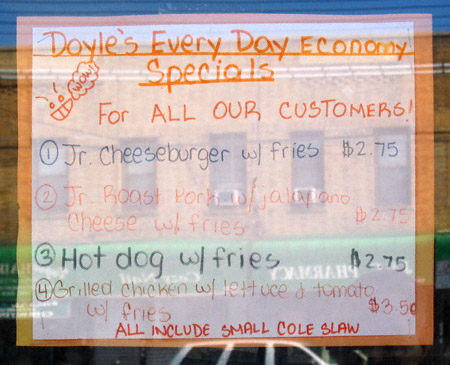 Doyle's Every Day Economy
Specials
WOW!
For ALL OUR CUSTOMERS!
① Jr. Cheeseburger w/ fries $2.75
② Jr. Roast Pork w/ jalapano
Cheese w/ fries $2.75
③ Hot dog w/ fries $2.75
④ Grilled chicken w/ lettuce & tomato
w/ fries $3.50
ALL INCLUDE SMALL COLE SLAW
PHARMACY